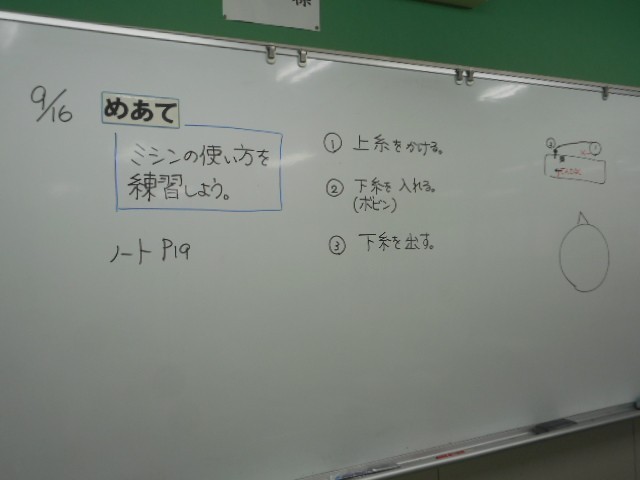 様
9/16
めあて
ミシンの使い方を
練習しよう。
ノート P19
① 上糸をかける。
② 下糸を入れる。
(ボビン)
③ 下糸を出す。